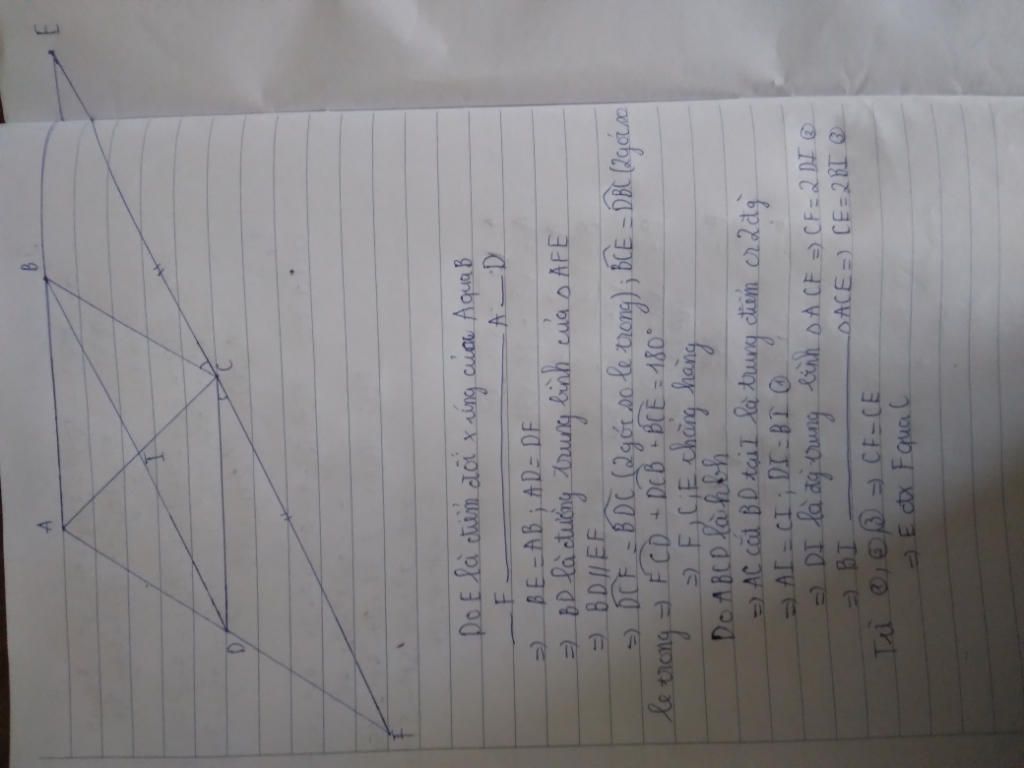 E
B
A
I
C
D
F
Do E là điểm đối xứng của A qua B
F ——— A — D
⇒ BE = AB ; AD = DF
⇒ BD là đường trung bình của △ AFE
⇒ BD // EF
⇒ DCF = BDC (2 góc so le trong) ; BCE = DBC (2 góc so
le trong ⇒ FCD + DCB + BCE = 180°
⇒ F, C, E thẳng hàng
Do ABCD là hbh
⇒ AC cắt BD tại I là trung điểm của 2 đg
⇒ AI = CI ; DI = BI ①
⇒ DI là đg trung bình △ ACF ⇒ CF = 2 DI ②
⇒ BI ——— △ ACE ⇒ CE = 2BI ③
Từ ①, ②, ③ ⇒ CF = CE
⇒ E đx F qua C